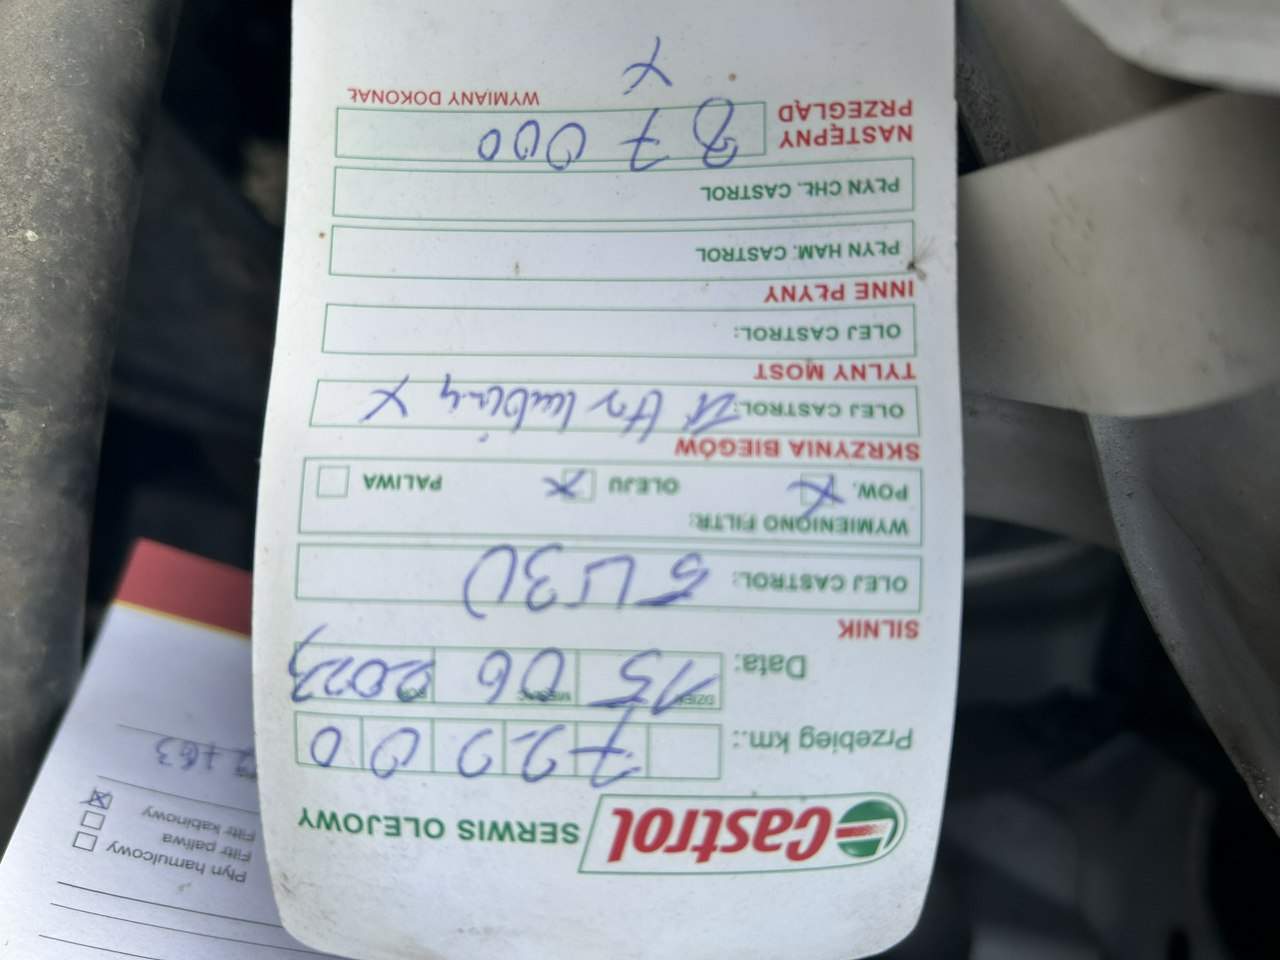 Castrol SERWIS OLEJOWY
Przebieg km.:
Data: DZIEŃ 15 MIESIĄC 06 ROK 2023
SILNIK
OLEJ CASTROL: 5W30
WYMIENIONO FILTR:
POW. X OLEJU X PALIWA
SKRZYNIA BIEGÓW
OLEJ CASTROL: X
TYLNY MOST
OLEJ CASTROL:
INNE PŁYNY
PŁYN HAM. CASTROL
PŁYN CHŁ. CASTROL
NASTĘPNY
PRZEGLĄD 87000
WYMIANY DOKONAŁ
X
Płyn hamulcowy
Filtr paliwa
Filtr kabinowy X